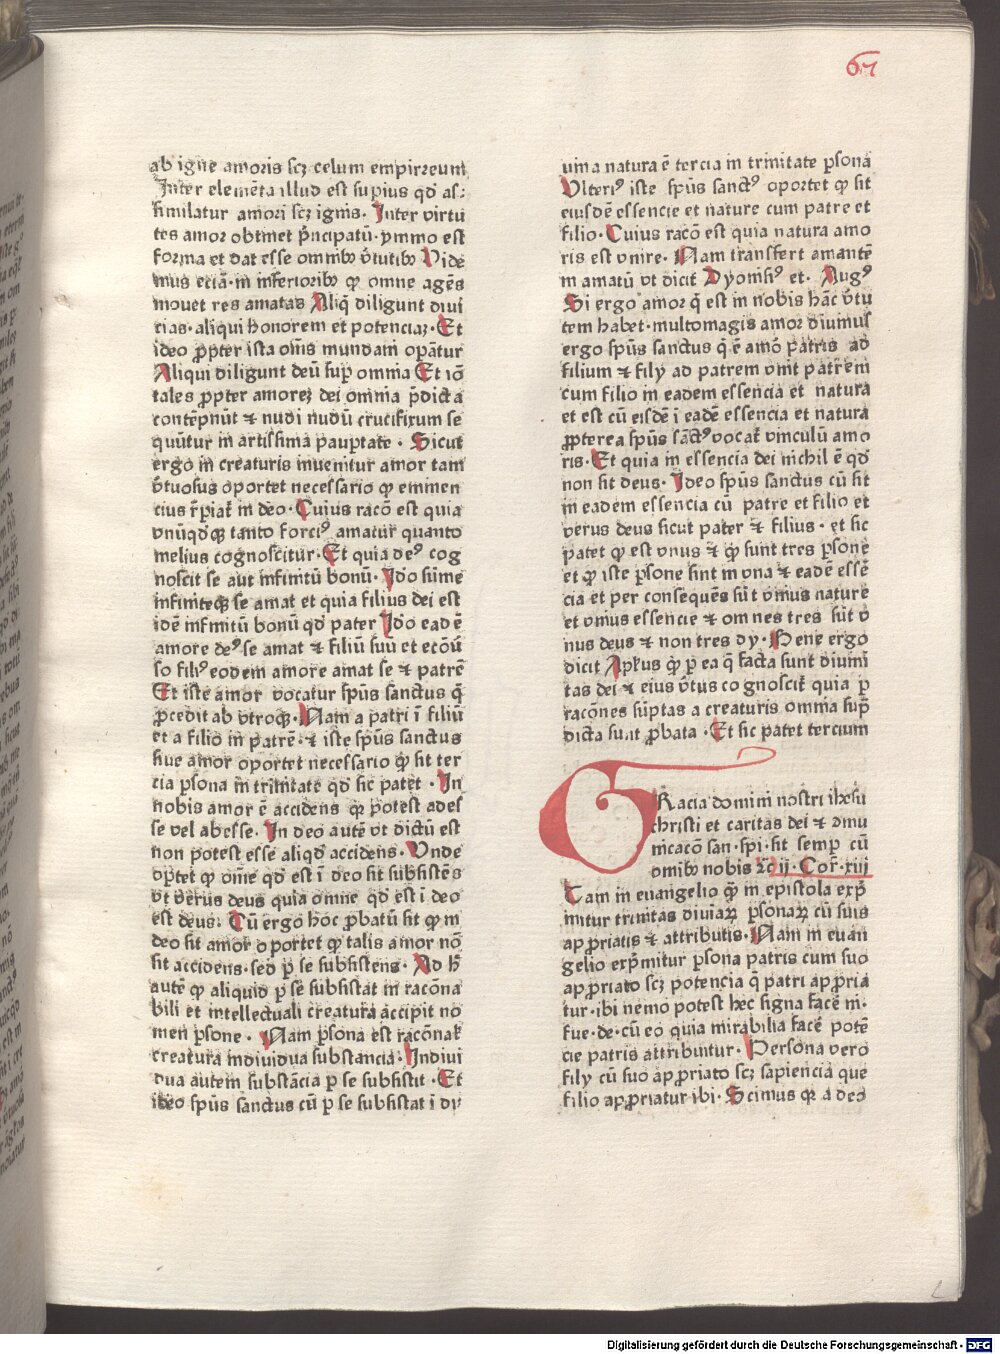 67
ab igne amoris scꝫ celum empirreum
Inter elemēta illud est supius qd̄ as⸗
similatur amori scꝫ ignis. Inter virtu
tes amor obtinet p̄ncipatū. ymmo est
forma et dat esse omnibꝫ v̄tutibꝫ Vide
mus eciā. in inferioribꝫ ꝙ omne agēs
mouet res amatas Aliq̄ diligunt diui
cias. aliqui honorem et potenciaꝫ. Et
ideo ꝓpter ista om̄s mundani oꝑātur
Aliqui diligunt deū sup̄ omnia Et iō
tales ꝓpter amoreꝫ dei omnia p̄dicta
contēpnūt ⁊ nudi nudū crucifixum se
quūtur in artissima pauꝑtate. Sicut
ergo in creaturis inuenitur amor tam
v̄tuosus oportet necessario ꝙ eminen
cius r̄piat̄ in deo. Cuius racō est quia
vnūqd̄qꝫ tanto forciꝰ amatur quanto
melius cognoscitur. Et quia deꝰ cog
noscit se aut infinitū bonū. Ido sūme
infiniteqꝫ se amat et quia filius dei est
idē infinitū bonū qd̄ pater Ido eadē
amore deꝰ se amat ⁊ filiū suū et ecōū
so filiꝰ eodem amore amat se ⁊ patrē
Et iste amor vocatur sp̄us sanctus q̄
ꝓcedit ab vtroqꝫ. Nam a patri ī filiū
et a filio in patrē. ⁊ iste sp̄us sanctus
siue amor oportet necessario ꝙ sit ter
cia ꝑsona in trinitate qd̄ sic patet. In
nobis amor ē accidens qꝫ potest ades
se vel abesse. In deo autē vt dictū est
non potest esse aliqd̄ accidens. Vnde
oꝑtet ꝙ om̄e qd̄ est ī deo sit subsistēs
vt verus deus quia omne qd̄ est ī deo
est deus. Cū ergo hoc ꝓbatū sit ꝙ in
deo sit amor oportet ꝙ talis amor nō
sit accidens. sed ꝑ se subsistens. Ad h̄
autē ꝙ aliquid ꝑ se subsistat in racōna
bili et intellectuali creatura accipit no
men ꝑsone. Nam ꝑsona est racōnal̄
creatura indiuidua substancia. Indiui
dua autem substācia ꝑ se subsistit. Et
ideo sp̄us sanctus cū ꝑ se subsistat ī di
uina natura ē tercia in trinitate ꝑsona
Vlteriꝰ iste sp̄us sanctꝰ oportet ꝙ sit
eiusdē essencie et nature cum patre et
filio. Cuius racō est quia natura amo
ris est vnire. Nam transfert amantē
in amatū vt dicit Dyonisꝰ et. Augꝰ
Si ergo amor q̄ est in nobis hāc v̄tu
tem habet. multomagis amor diuinus
ergo sp̄us sanctus q̄ ē amō patris ad
filium ⁊ fily ad patrem vnit patrem
cum filio in eadem essencia et natura
et est cū eisdē ī eadē essencia et natura
ꝓpterea sp̄us sāctꝰ vocat̄ vinculū amo
ris. Et quia in essencia dei nichil ē qd̄
non sit deus. Ideo sp̄us sanctus cū sit
in eadem essencia cū patre et filio et
verus deus sicut pater ⁊ filius. et sic
patet ꝙ est vnus ⁊ ꝙ sunt tres ꝑsone
et ꝙ iste ꝑsone sint in vna ⁊ eadē essē
cia et per consequēs sūt vnius nature
et vnius essencie ⁊ omnes tres sūt v
nus deus ⁊ non tres dy. Bene ergo
dicit Apl̄us ꝙ ꝑ ea q̄ facta sunt diuini
tas dei ⁊ eius v̄tus cognoscit̄ quia ꝑ
racōnes sūptas a creaturis omnia sup̄
dicta sunt ꝓbata. Et sic patet tercium
GRacia domini nostri ihesu
christi et caritas dei ⁊ ꝯmu
nicacō san. spi. sit semꝑ cū
omibꝫ nobis ꝛc̄ ij. Cor. xiij
Tam in euangelio ꝙ in epistola exp̄
mitur trinitas diuinaꝝ ꝑsonaꝝ cū suis
appriatis ⁊ attributis. Nam in euan
gelio exp̄mitur ꝑsona patris cum suo
appriato scꝫ potencia q̄ patri appria
tur. ibi nemo potest hec signa facē ni.
fue. de. cū eo quia mirabilia facē potē
cie patris attribuntur. Persona vero
fily cū suo appriato scꝫ sapiencia que
filio appriatur ibi. Scimus qꝛ a deo
Digitalisierung gefördert durch die Deutsche Forschungsgemeinschaft - DFG